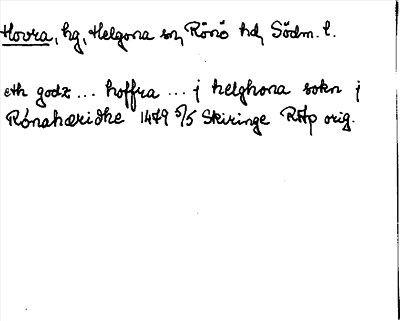 Hovra, hg, Helgona sn, Rönö hd, Södm. l.
eth godz ... hoffra ... j helghona sokn j
Rónahæridhe 1479 5/5 Skiringe RAp orig.